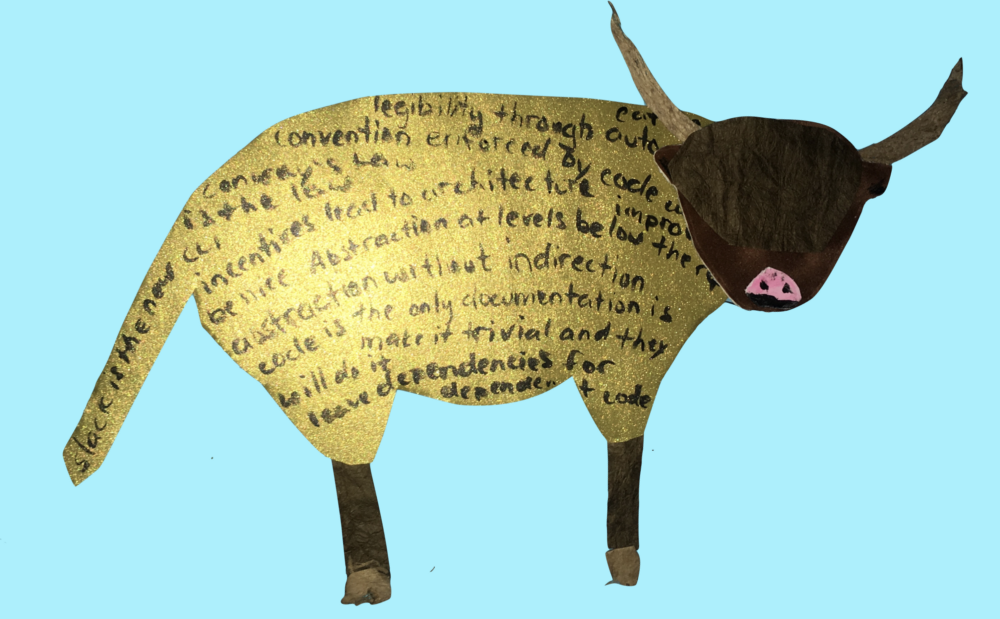 legibility through auto
convention enforced by code
conway's Law
is the law
incentives lead to architecture
Abstraction at levels below the
abstraction without indirection
code is the only documentation is
make it trivial and they
will do it
leave dependencies for
dependent code
slack is the new CLI